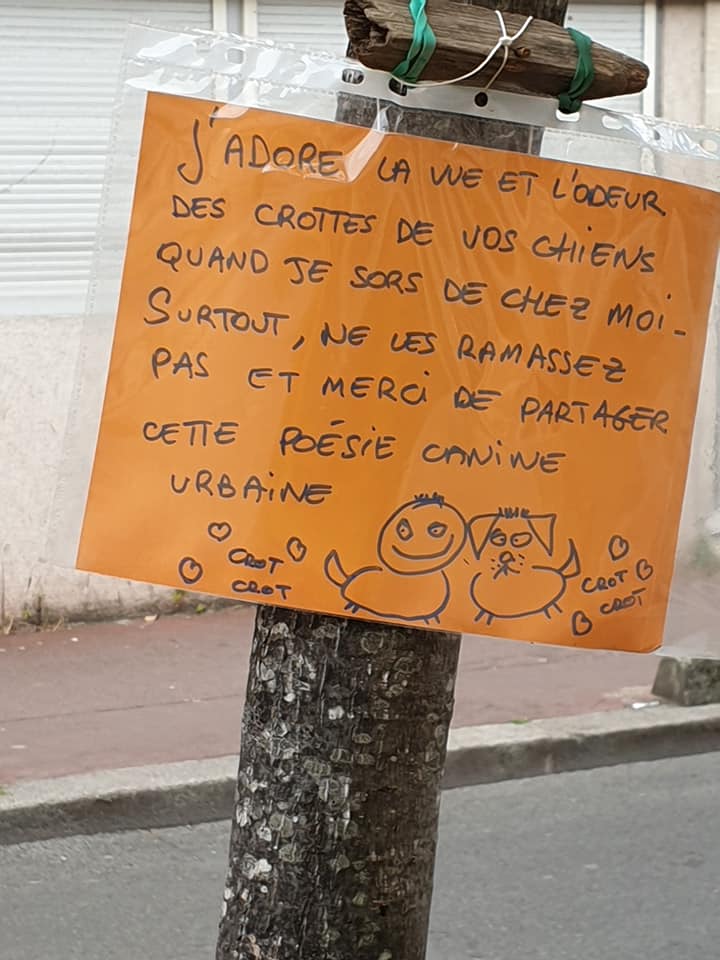 J'ADORE LA VUE ET L'ODEUR
DES CROTTES DE VOS CHIENS
QUAND JE SORS DE CHEZ MOI-
SURTOUT, NE LES RAMASSEZ
PAS ET MERCi DE PARTAGER
CETTE POÉSIE CANiNE
URBAiNE
CROT
CROT
CROT
CROT